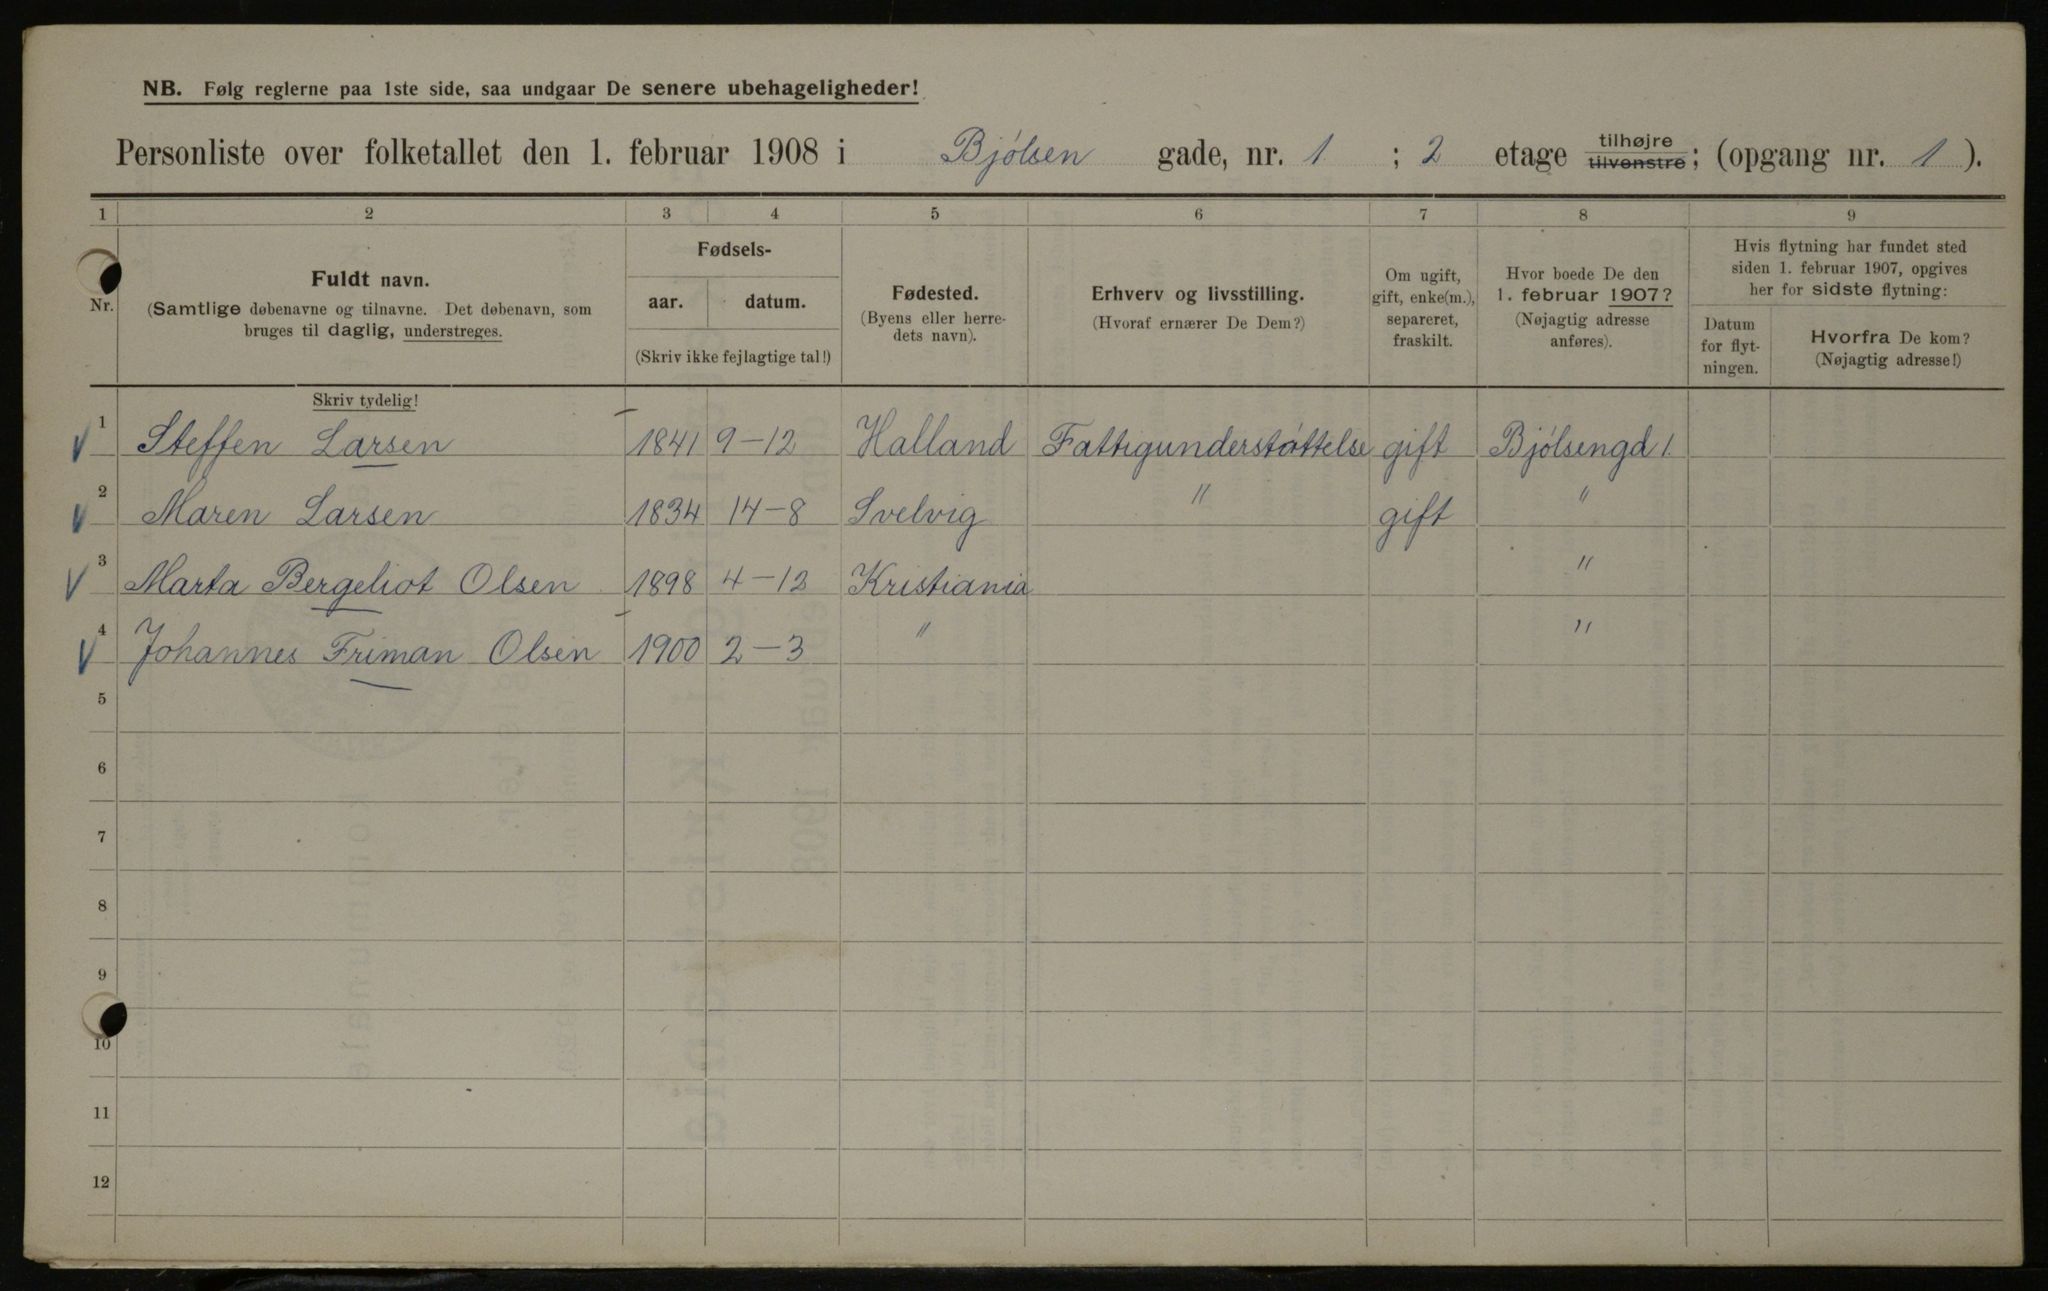 NB. Følg reglerne paa 1ste side, saa undgaar De senere ubehageligheder!
Personliste over folketallet den 1. februar 1908 i Bjølsen gade, nr. 1 ; 2 etage tilhøjre tilvenstre; (opgang nr. 1).
1 2 3 4 5 6 7 8 9
Nr.
Fuldt navn.
(Samtlige døbenavne og tilnavne. Det døbenavn, som
bruges til daglig, understreges.
Fødsels-
aar. datum.
(Skriv ikke fejlagtige tal!)
Fødested.
(Byens eller herre-
dets navn).
Erhverv og livsstilling.
(Hvoraf ernærer De Dem?)
Om ugift,
gift, enke(m.),
separeret,
fraskilt.
Hvor boede De den
1. februar 1907?
(Nøjagtig adresse
anføres).
Hvis flytning har fundet sted
siden 1. februar 1907, opgives
her for sidste flytning:
Datum
for flyt-
ningen.
Hvorfra De kom?
(Nøjagtig adresse!)
Skriv tydelig!
1 Steffen Larsen 1841 9-12 Halland Fattigunderstøttelse gift Bjølsengd 1.
2 Maren Larsen 1834 14-8 Svelvig " gift "
3 Marta Bergeliot Olsen 1898 4-12 Kristiania "
4 Johannes Friman Olsen 1900 2-3 " "
5
6
7
8
9
10
11
12